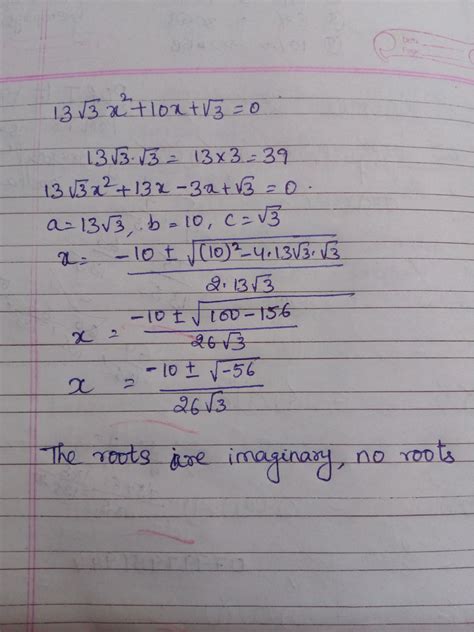 13√3 x² + 10x + √3 = 0
13√3·√3 = 13×3 = 39
13√3x² + 13x - 3x + √3 = 0.
a = 13√3, b = 10, c = √3
x = -10 ± √(10)² - 4·13√3·√3 / 2·13√3
x = -10 ± √100 - 156 / 26√3
x = -10 ± √-56 / 26√3
The roots are imaginary, no roots